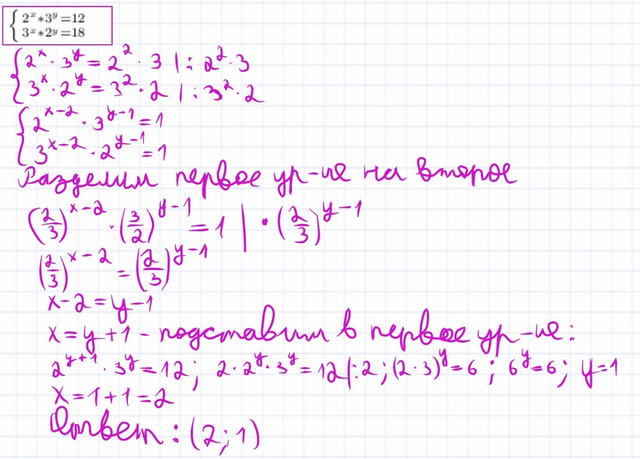 { 2^x*3^y=12
3^x*2^y=18
{ 2^x · 3^y = 2^2 · 3 | : 2^2 · 3
3^x · 2^y = 3^2 · 2 | : 3^2 · 2
{ 2^(x-2) · 3^(y-1) = 1
3^(x-2) · 2^(y-1) = 1
Разделим первое ур-ие на второе
(2/3)^(x-2) · (3/2)^(y-1) = 1 | · (2/3)^(y-1)
(2/3)^(x-2) = (2/3)^(y-1)
x-2=y-1
x=y+1 - подставим в первое ур-ие:
2^(y+1) · 3^y = 12; 2 · 2^y · 3^y = 12 |:2; (2·3)^y = 6; 6^y = 6; y=1
x=1+1=2
Ответ: (2; 1)